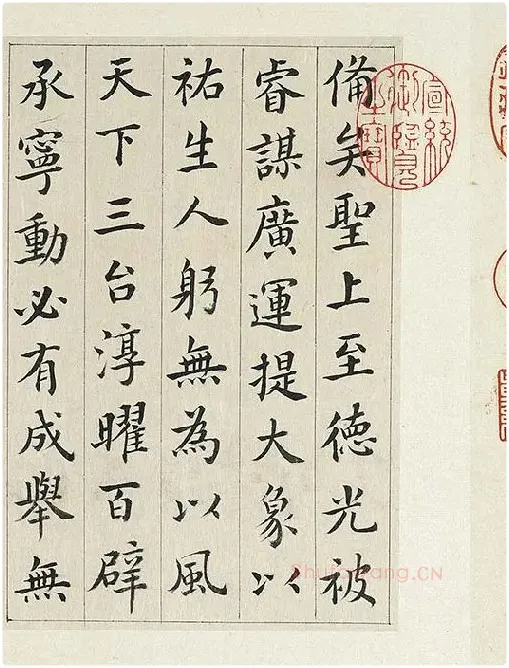 備矣聖上至德光被
睿謀廣運提大象以
祐生人躬無為以風
天下三台淳曜百辟
承寧動必有成舉無
宣統御覽之寶